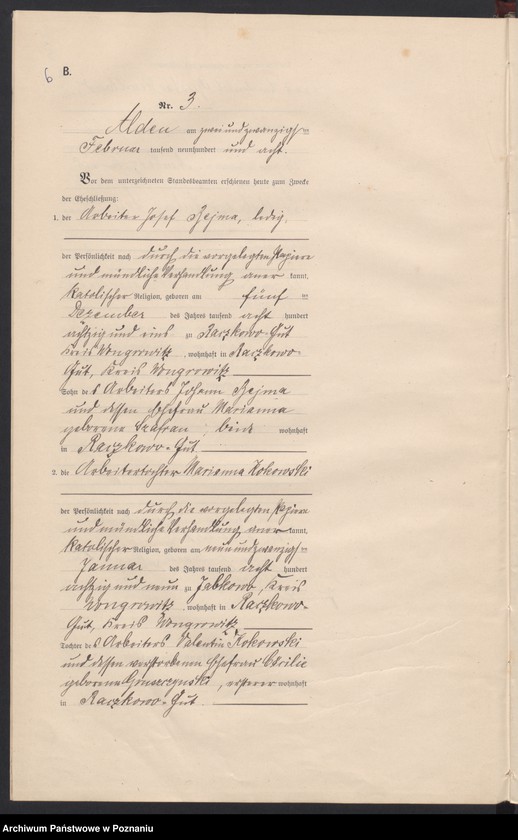 6 B.
Nr. 3.
Alden am zwei und zwanzigs=ten
Februar tausend neunhundert und acht.
Vor dem unterzeichneten Standesbeamten erschienen heute zum Zwecke
der Eheschließung:
1. der Arbeiter Josef Bejma, ledig,
der Persönlichkeit nach durch die vorgelegten Papiere
und mündliche Verhandlung aner kannt,
katolischer Religion, geboren am fünf =ten
Dezember des Jahres tausend acht hundert
achtzig und eins zu Raczkowo-Gut
Kreis Wongrowitz, wohnhaft in Raczkowo
Gut, Kreis Wongrowitz
Sohn des Arbeiters Johann Bejma
und dessen Ehefrau Marianna
geborene Szafran, beide wohnhaft
in Raczkowo-Gut
2. die Arbeitertochter Marianna Kokowski
der Persönlichkeit nach durch die vorgelegten Papiere
und mündliche Verhandlung aner kannt,
katolischer Religion, geboren am neun und zwanzigs =ten
Januar des Jahres tausend acht hundert
achtzig und neun zu Jabkowo, Kreis
Wongrowitz, wohnhaft in Raczkowo-
Gut, Kreis Wongrowitz
Tochter des Arbeiters Valentin Kokowski
und dessen verstorbenen Ehefrau
geborene, ersterer wohnhaft
in Raczkowo-Gut
Archiwum Państwowe w Poznaniu